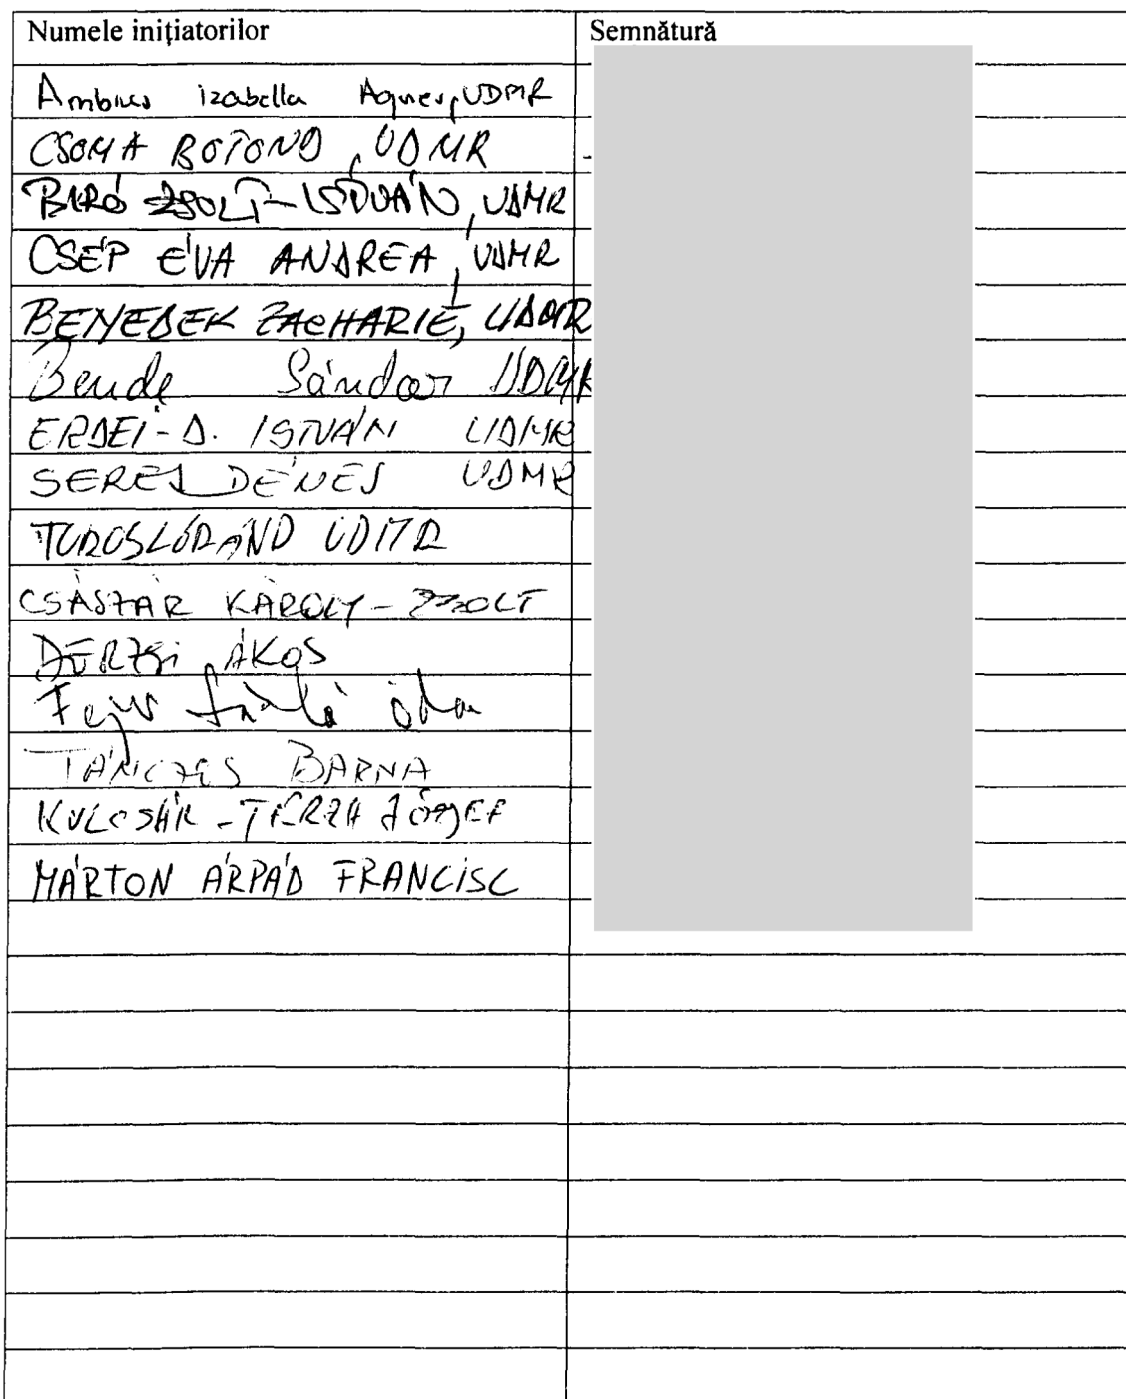 Numele inițiatorilor Semnătură
Ambrus Izabella Agnes, UDMR
CSOMA BOTOND, UDMR
BIRÓ ZSOLT-ISTVÁN, UDMR
CSÉP ÉVA ANDREA, UDMR
BENEDEK ZACHARIE, UDMR
Bende Sándor UDMR
ERDEI-D. ISTVÁN UDMR
SERES DÉNES UDMR
TUROS LÓRÁND UDMR
CSÁSZÁR KÁROLY-ZSOLT
DERZSI ÁKOS
Fejér László Ödön
TÁNCZOS BARNA
KULCSÁR-TERZA JÓZSEF
MÁRTON ÁRPÁD FRANCISC